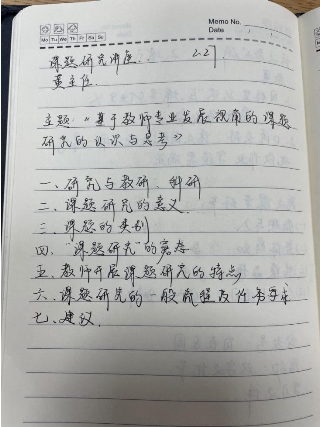 Memo No.
Mo Tu We Th Fr Sa Su
Date / /
课题研究讲座. 2.27
黄主任.
主题:《基于教师专业发展视角的课题
研究的认识与思考》
一、研究与教研、科研
二、课题研究的意义.
三、课题的类别
四、“课题研究”的常态
五、教师开展课题研究的特点
六、课题研究的一般流程及任务要求
七、建议.